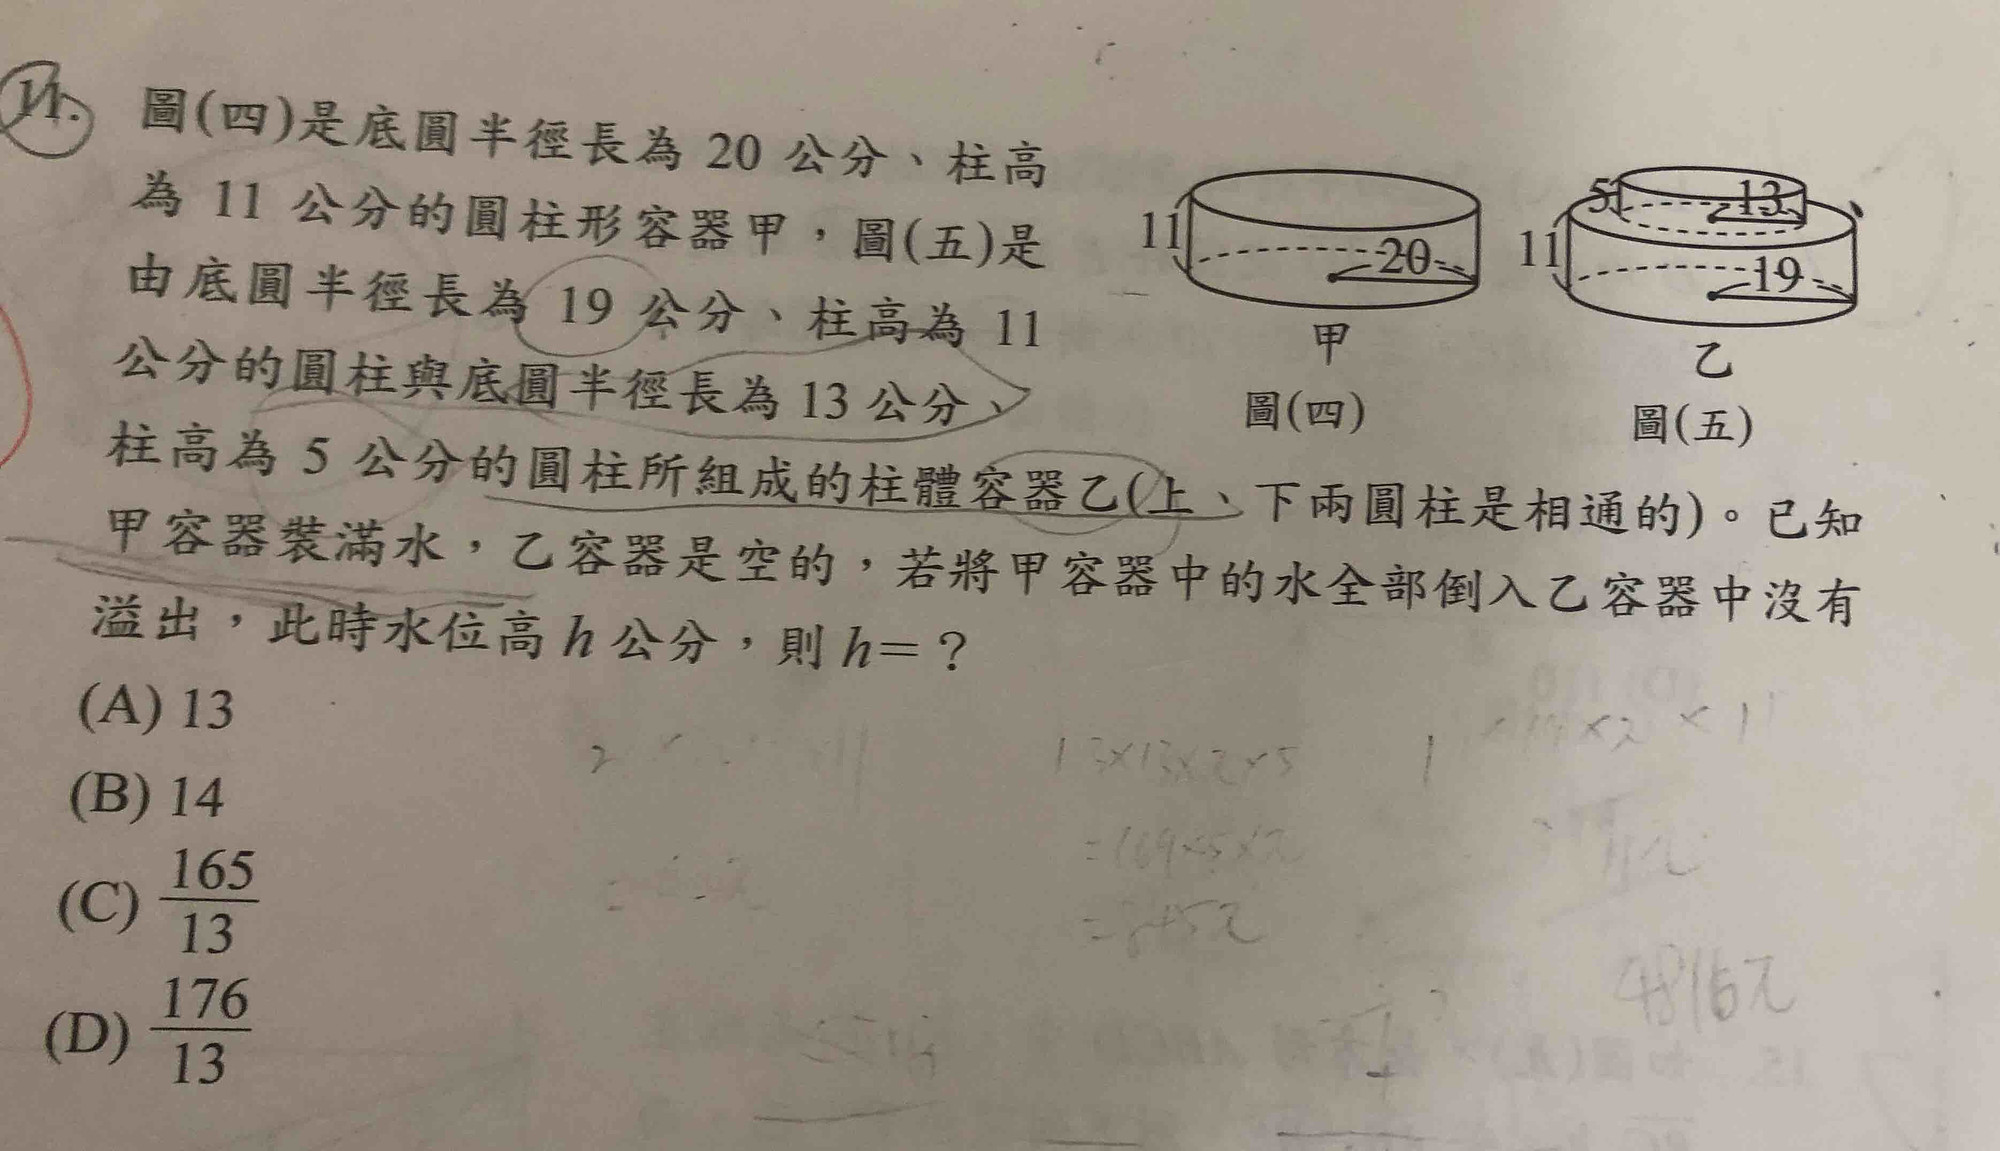 14. 圖(四)是底圓半徑長為 20 公分、柱高
為 11 公分的圓柱形容器甲，圖(五)是
由底圓半徑長為 19 公分、柱高為 11
公分的圓柱與底圓半徑長為 13 公分、
柱高為 5 公分的圓柱所組成的柱體容器乙(上、下兩圓柱是相通的)。已知
甲容器裝滿水，乙容器是空的，若將甲容器中的水全部倒入乙容器中沒有
溢出，此時水位高 h 公分，則 h=？
11
20
甲
圖(四)
5
13
11
19
乙
圖(五)
(A) 13
(B) 14
(C) 165/13
(D) 176/13
13×13×π×5
=169×5×π
=845π